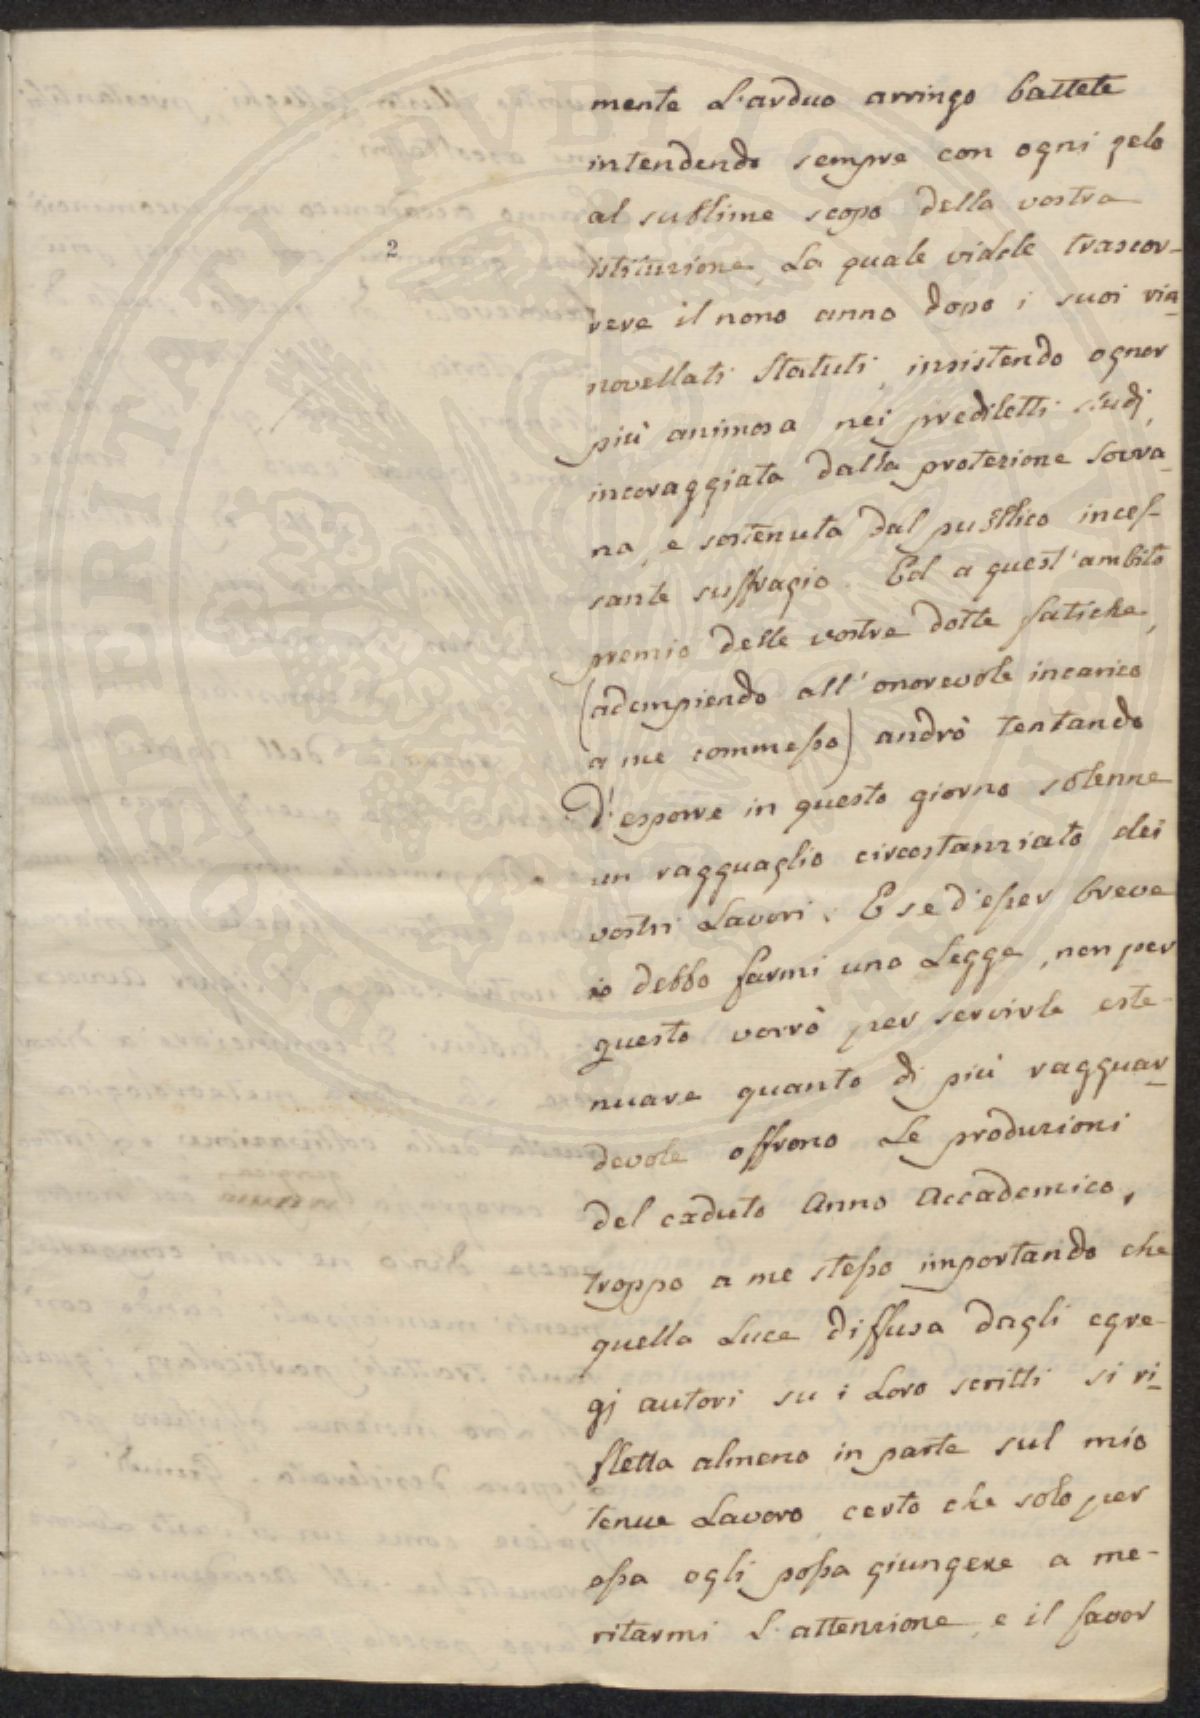 mente L'arduo arringo battete
intendendo sempre con ogni zelo
al sublime scopo della vostra
2
istituzione, La quale videle trascor-
rere il nono anno dopo i suoi rin
novellati Statuti, insistendo ognor
più animosa nei prediletti studj,
incoraggiata dalla protezione Sovra-
na, e sostenuta dal pubblico inces-
sante suffragio. Ed a quest'ambito
premio delle vostre dotte fatiche,
(adempiendo all'onorevole incarico
a me commesso) andrò tentando
d'esporre in questo giorno solenne
un ragguaglio circostanziato dei
vostri Lavori. E se d'esser breve
io debbo farmi una Legge, non per
questo vorrò per servirle este-
nuare quanto di più ragguar-
devole offrono Le produzioni
del caduto Anno Accademico,
troppo a me stesso importando che
quella Luce diffusa dagli egre-
gj autori su i Loro scritti si ri-
fletta almeno in parte sul mio
tenue Lavoro certo che solo per
essa egli possa giungere a me-
ritarmi L'attenzione, e il favor
PROSPERITATI PVBLICAE